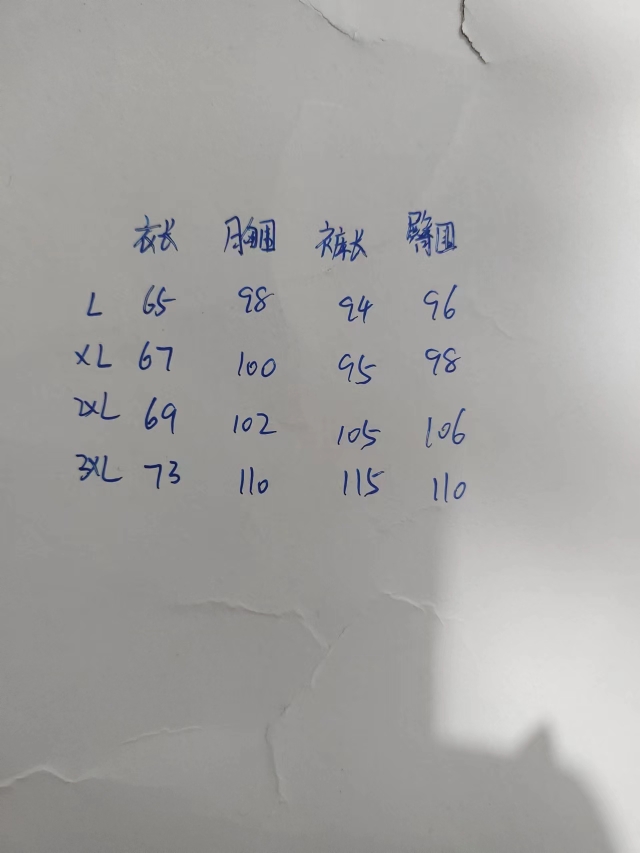 衣长 胸围 裤长 臀围
L 65 98 94 96
XL 67 100 95 98
2XL 69 102 105 106
3XL 73 110 115 110